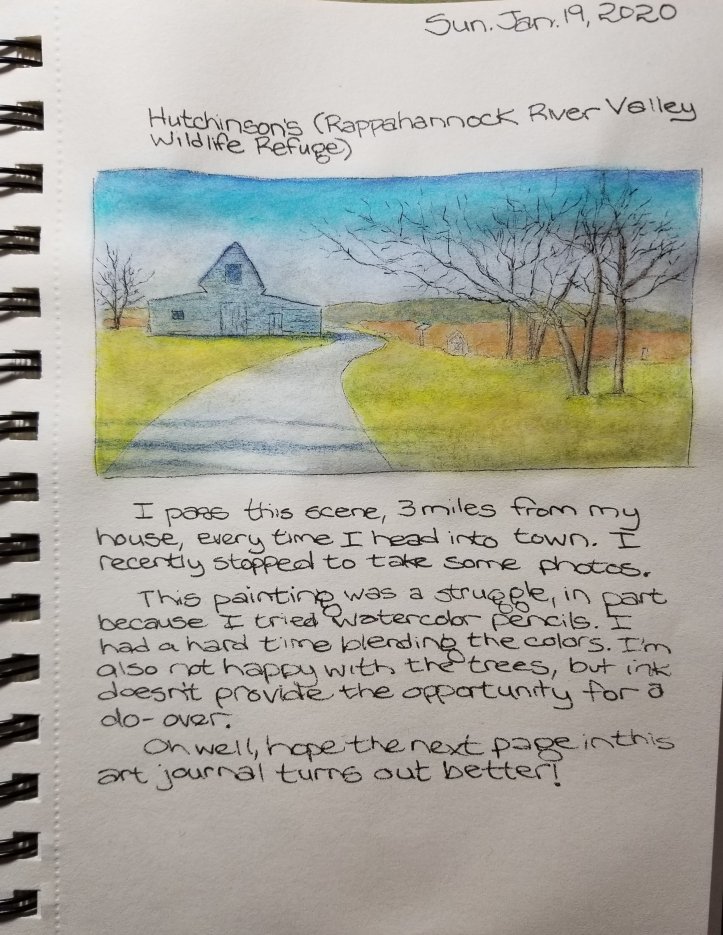 Sun. Jan. 19, 2020
Hutchinson's (Rappahannock River Valley
Wildlife Refuge)
I pass this scene, 3 miles from my
house, every time I head into town. I
recently stopped to take some photos.
This painting was a struggle, in part
because I tried watercolor pencils. I
had a hard time blending the colors. I'm
also not happy with the trees, but ink
doesn't provide the opportunity for a
do-over.
Oh well, hope the next page in this
art journal turns out better!